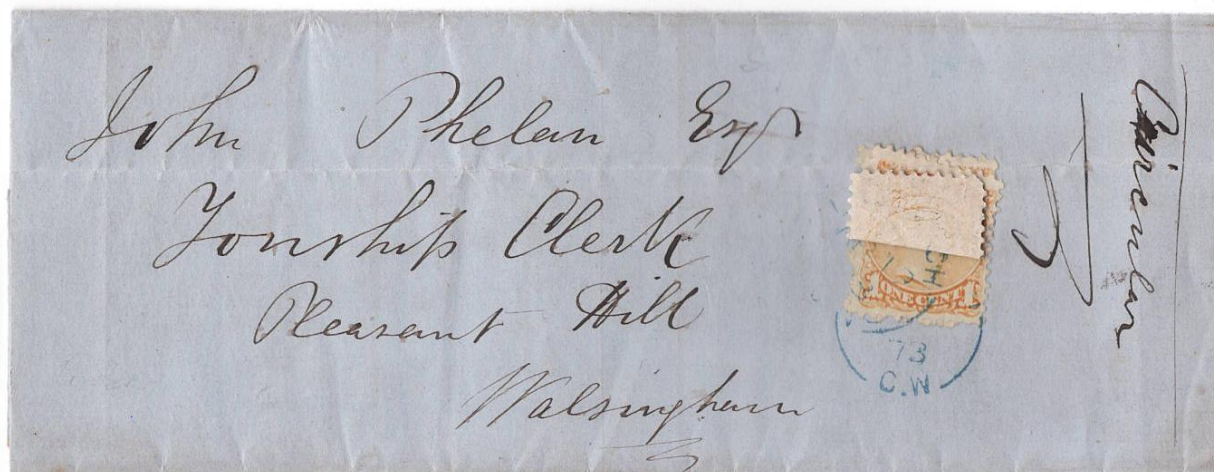 John Phelan Esqr
Tonship Clerk
Pleasant Hill
Walsingham
Circular
ONE CENT
73
C.W